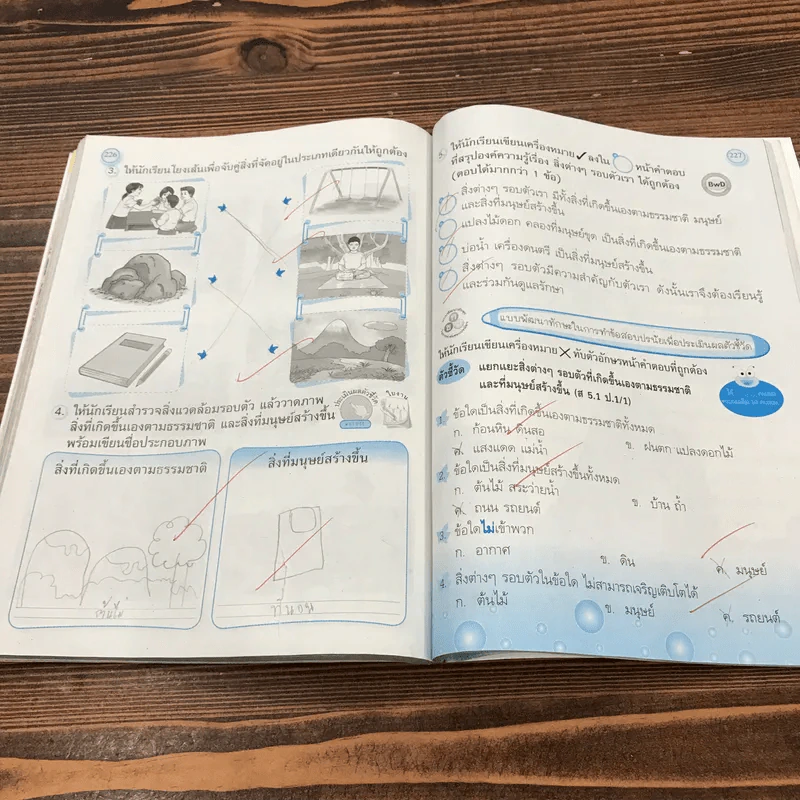 226
3. ให้นักเรียนโยงเส้นเพื่อจับคู่สิ่งที่จัดอยู่ในประเภทเดียวกันให้ถูกต้อง
4. ให้นักเรียนสำรวจสิ่งแวดล้อมรอบตัว แล้ววาดภาพ
สิ่งที่เกิดขึ้นเองตามธรรมชาติ และสิ่งที่มนุษย์สร้างขึ้น
พร้อมเขียนชื่อประกอบภาพ
ใบงาน
สิ่งที่เกิดขึ้นเองตามธรรมชาติ
สิ่งที่มนุษย์สร้างขึ้น
ต้นไม้
ที่นอน
227
5. ให้นักเรียนเขียนเครื่องหมาย ✓ ลงใน หน้าคำตอบ
ที่สรุปองค์ความรู้เรื่อง สิ่งต่างๆ รอบตัวเรา ได้ถูกต้อง
(ตอบได้มากกว่า 1 ข้อ)
BwD
สิ่งต่างๆ รอบตัวเรา มีทั้งสิ่งที่เกิดขึ้นเองตามธรรมชาติ มนุษย์
และสิ่งที่มนุษย์สร้างขึ้น
แปลงไม้ดอก คลองที่มนุษย์ขุด เป็นสิ่งที่เกิดขึ้นเองตามธรรมชาติ
บ่อน้ำ เครื่องดนตรี เป็นสิ่งที่มนุษย์สร้างขึ้น
สิ่งต่างๆ รอบตัวมีความสำคัญกับตัวเรา ดังนั้นเราจึงต้องเรียนรู้
และร่วมกันดูแลรักษา
แบบพัฒนาทักษะในการทำข้อสอบปรนัยเพื่อประเมินผลตัวชี้วัด
ให้นักเรียนเขียนเครื่องหมาย ✗ ทับตัวอักษรหน้าคำตอบที่ถูกต้อง
ตัวชี้วัด แยกแยะสิ่งต่างๆ รอบตัวที่เกิดขึ้นเองตามธรรมชาติ
และที่มนุษย์สร้างขึ้น (ส 5.1 ป.1/1)
1. ข้อใดเป็นสิ่งที่เกิดขึ้นเองตามธรรมชาติทั้งหมด
ก. ก้อนหิน ดินสอ
ข. ฝนตก แปลงดอกไม้
ค. แสงแดด แม่น้ำ
2. ข้อใดเป็นสิ่งที่มนุษย์สร้างขึ้นทั้งหมด
ก. ต้นไม้ สระว่ายน้ำ
ข. บ้าน ถ้ำ
ค. ถนน รถยนต์
3. ข้อใดไม่เข้าพวก
ก. อากาศ ข. ดิน ค. มนุษย์
4. สิ่งต่างๆ รอบตัวในข้อใด ไม่สามารถเจริญเติบโตได้
ก. ต้นไม้ ข. มนุษย์ ค. รถยนต์